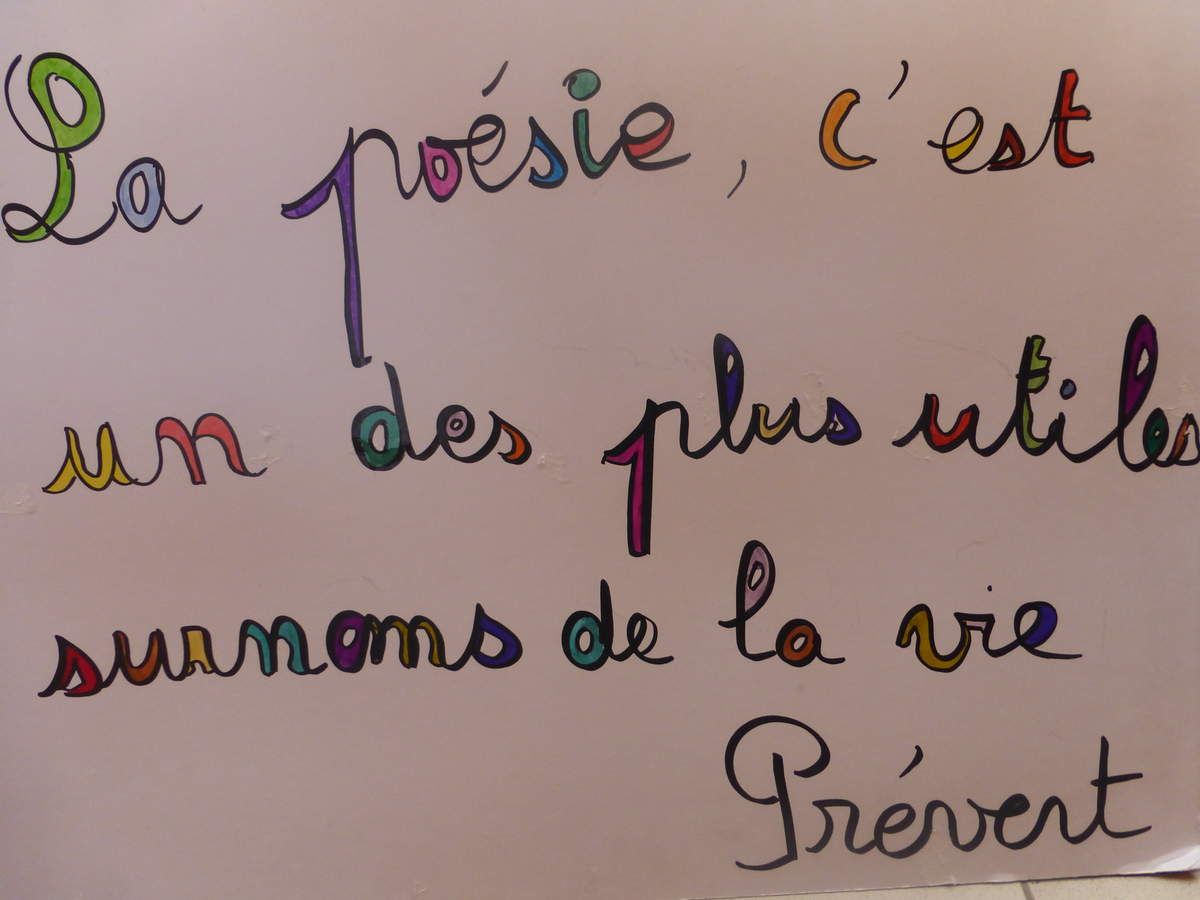 La poésie, c'est
un des plus utiles
surnoms de la vie
Prévert